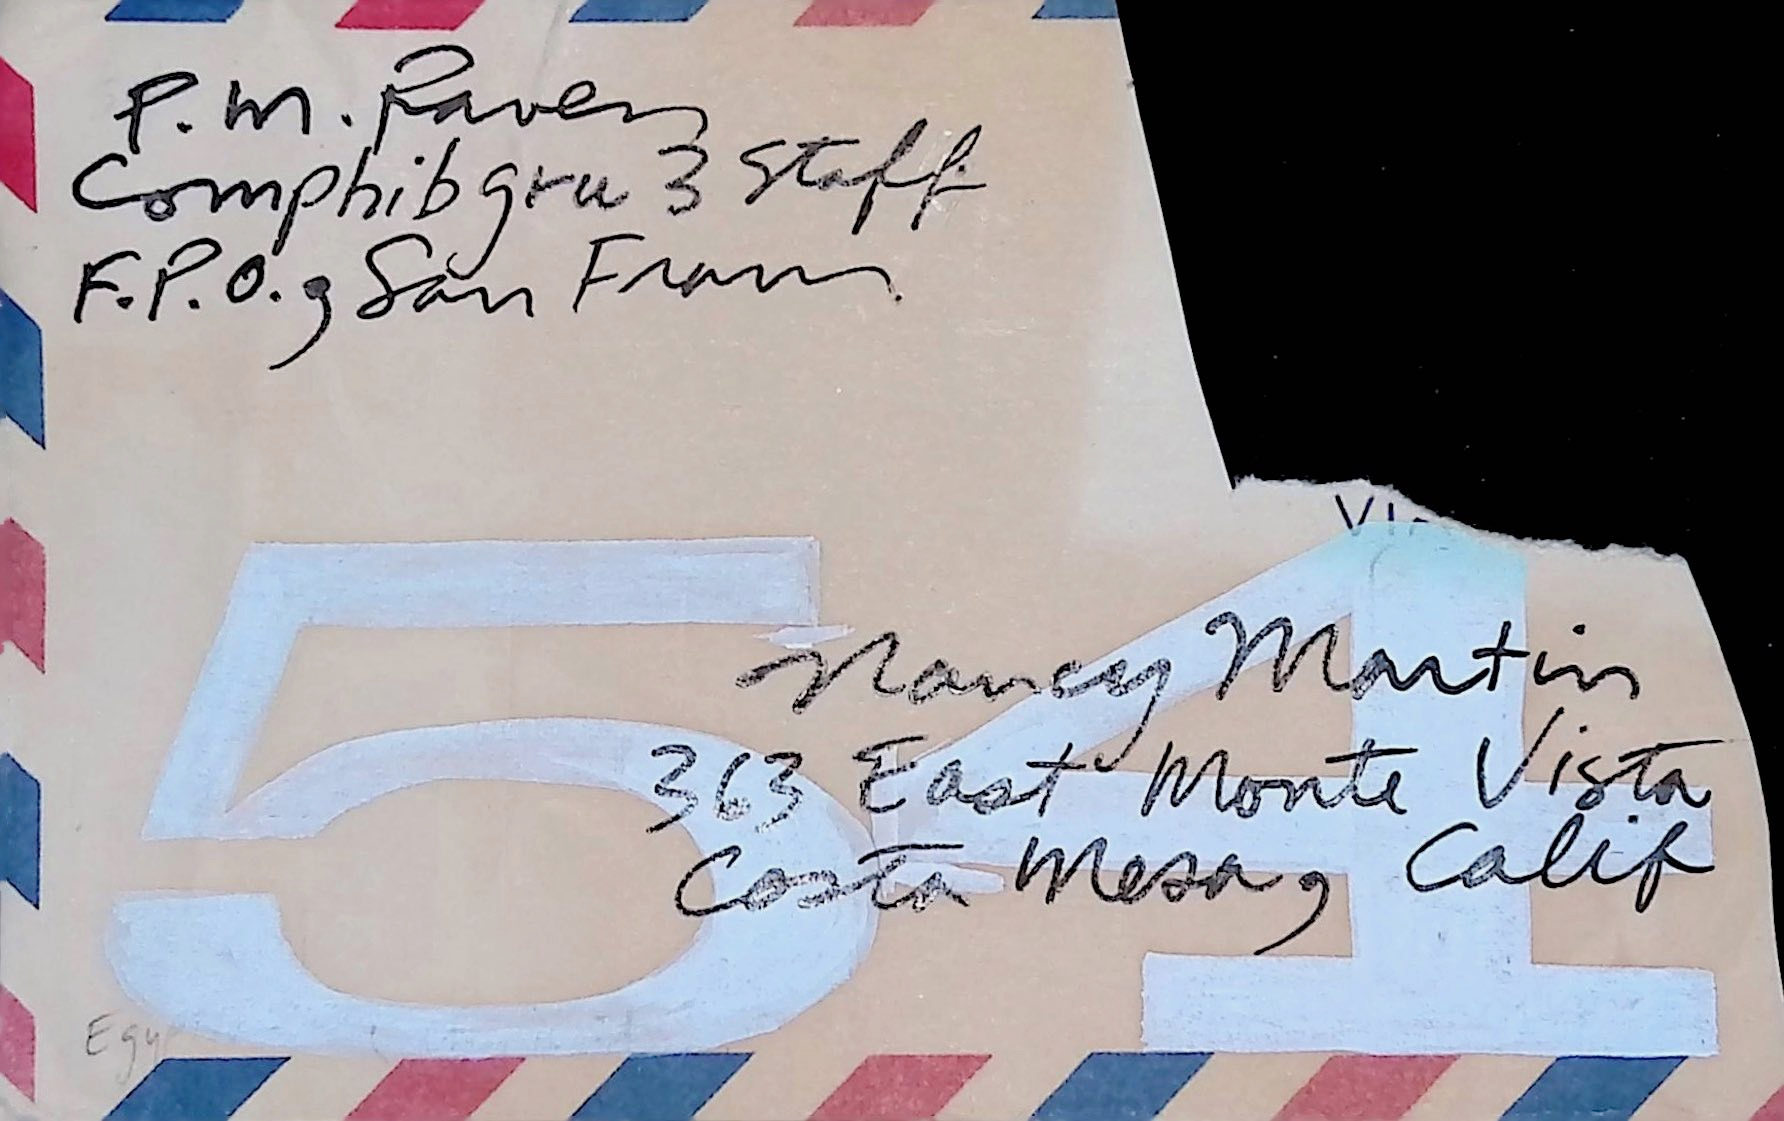 P. M. Raven
Comphibgru 3 Staff
F.P.O., San Fran.
54
Nancy Martin
363 East Monte Vista
Costa Mesa, Calif